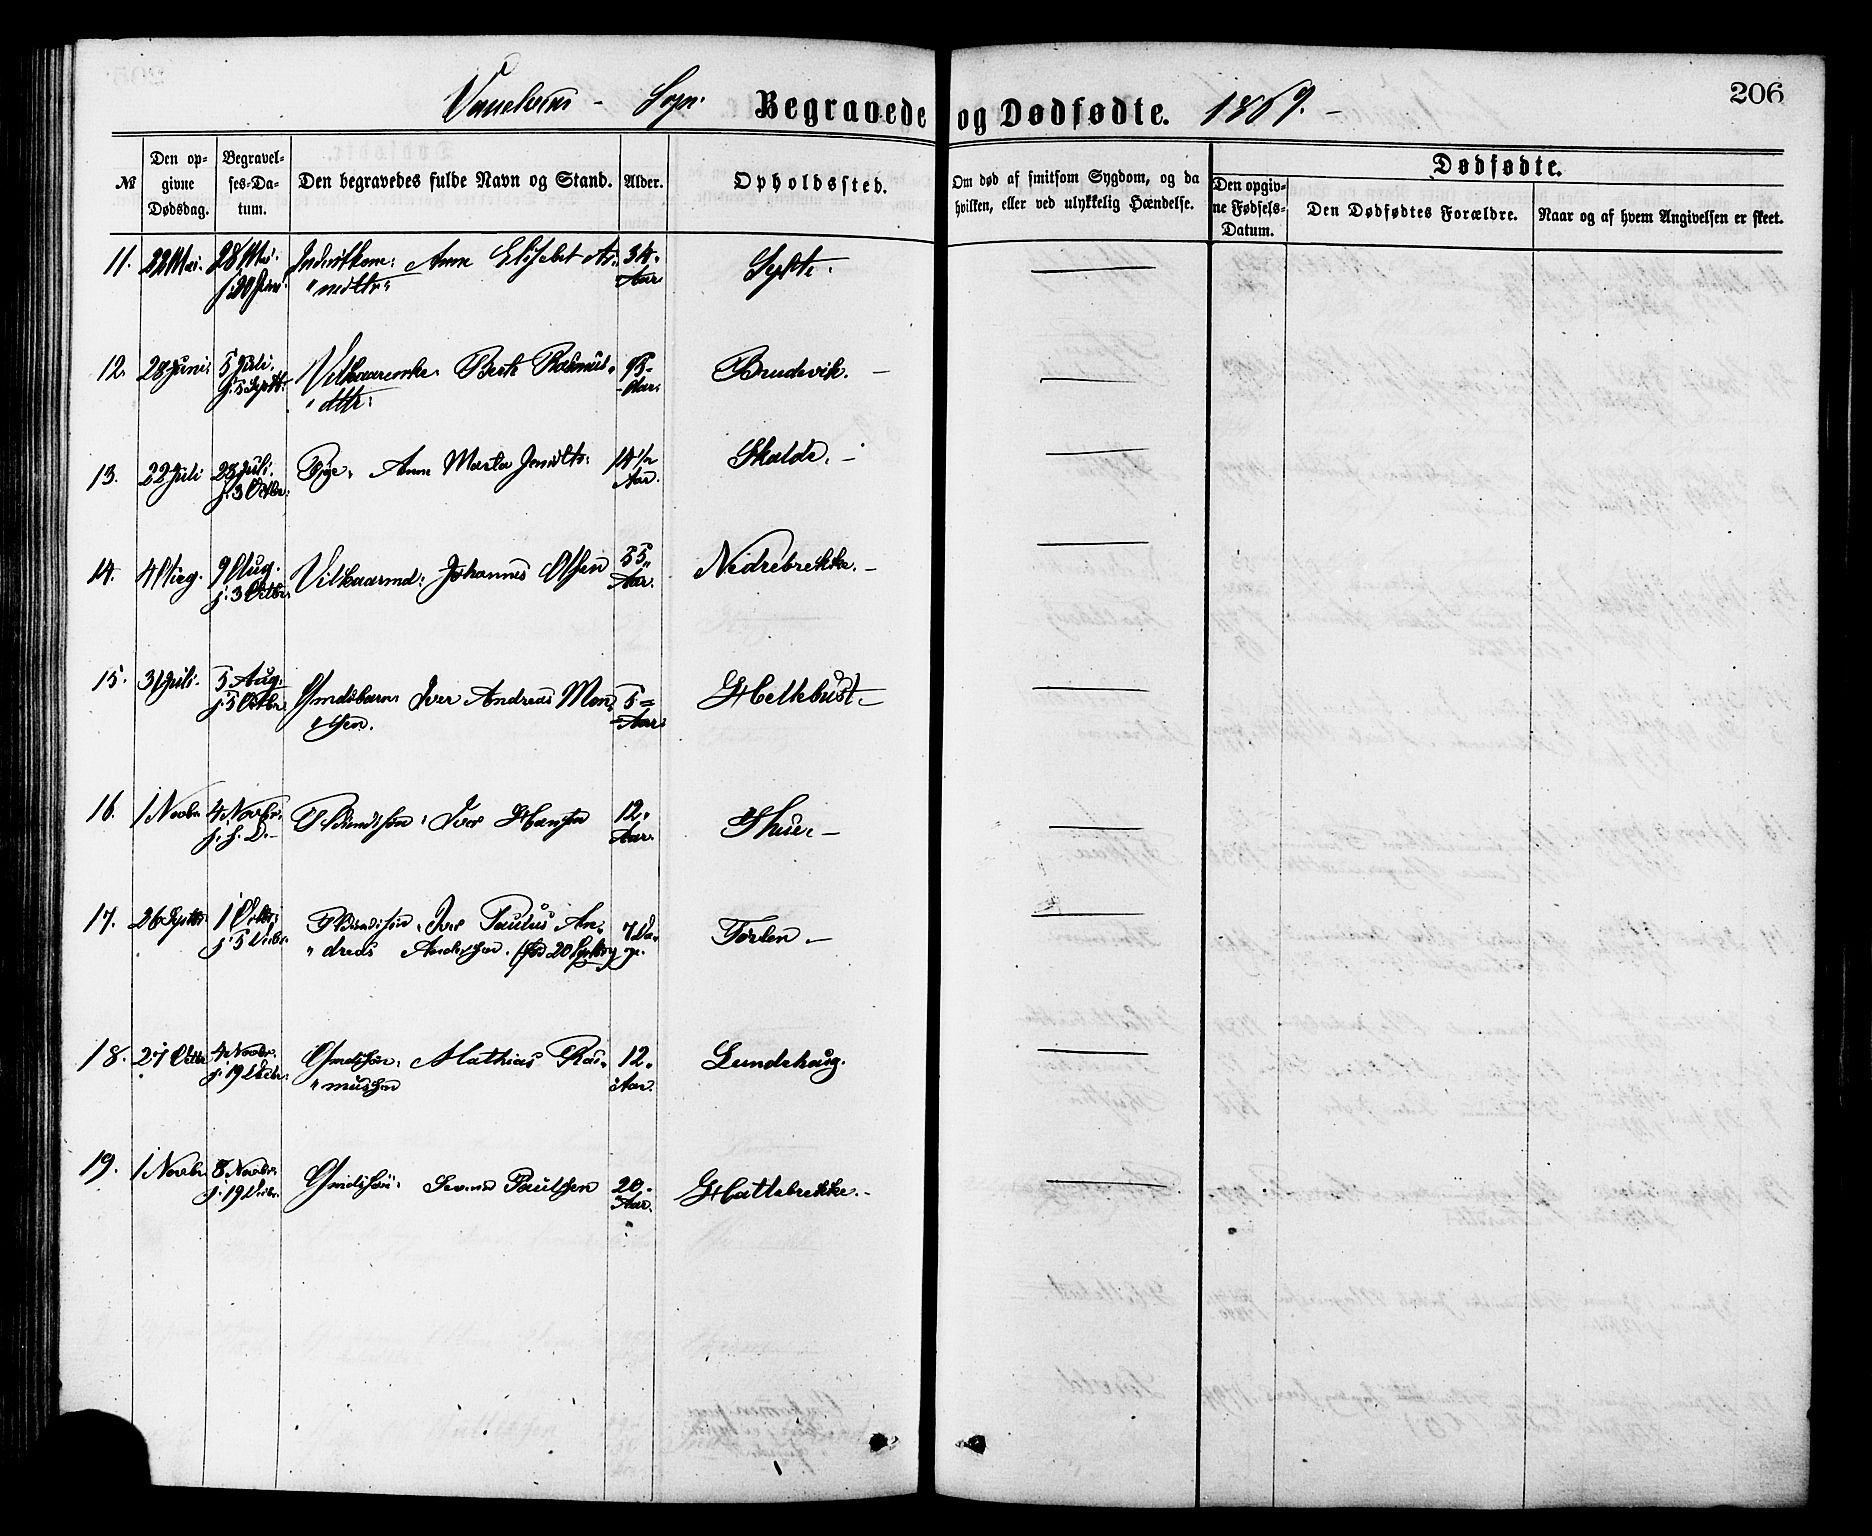 Vanelvens - Sogn. Begravede og Dødfødte. 1869. -
206
№
Den opgivne Dødsdag.
Begravelses-Datum.
Den begravedes fulde Navn og Stand.
Alder.
Opholdssted.
Om død af smitsom Sygdom, og da hvilken, eller ved ulykkelig Hændelse.
Dødfødte.
Den opgivne Fødsels-Datum.
Den Dødfødtes Forældre.
Naar og af hvem Angivelsen er skeet.
11. 22 Mai. 28 Mai. Anne Elisabet Ar- 34 Sylte.
j. 20 Juni "nedttr" Aar.
12. 28 Juni 5 Juli. Vilkaarenke. Berte Rasmus- 95- Brudevik. -
j. 5 Septbr. "dttr. Aar.
13. 22 Juli 28 Juli. Pige. Anne Marta Jensdtr. 14 1/2 Skalde. -
j. 3 Octbr. Aar.
14. 4 Aug. 9 Aug. Vilkaarmd. Johannes Olsen 55 Nedrebrekke. -
j. 3 Octbr. Aar.
15. 31 Juli. 5 Aug. Gmdsbarn. Iver Andreas Mon- 5 Helkebust -
j. 5 Octbr. "sen. Aar.
16. 1 Novbr. 4 Novbr. Iver Hansen 12. Thue. -
j. s. D. - Aar.
17. 26 Septbr. 1 Octbr. Iver Paulus An- 7 Da- Tørlen -
j. 5 "dreas Andersen. (fød 20 Septbr) ge.
18. 27 Octbr. 4 Novbr. Gmdssøn. Mathias Ras- 12. Lundehaug.
j. 19 "mussen Aar.
19. 1 Novbr. 8 Novbr. Gmdssøn. Paulsen 20. Hattebrekke. -
j. 19 Aar.